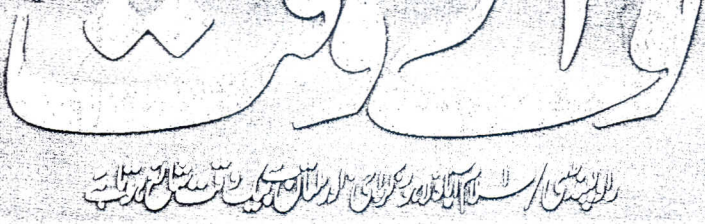 نوائے وقت
راولپنڈی/اسلام آباد، لاہور، کراچی اور ملتان سے بیک وقت شائع ہوتا ہے